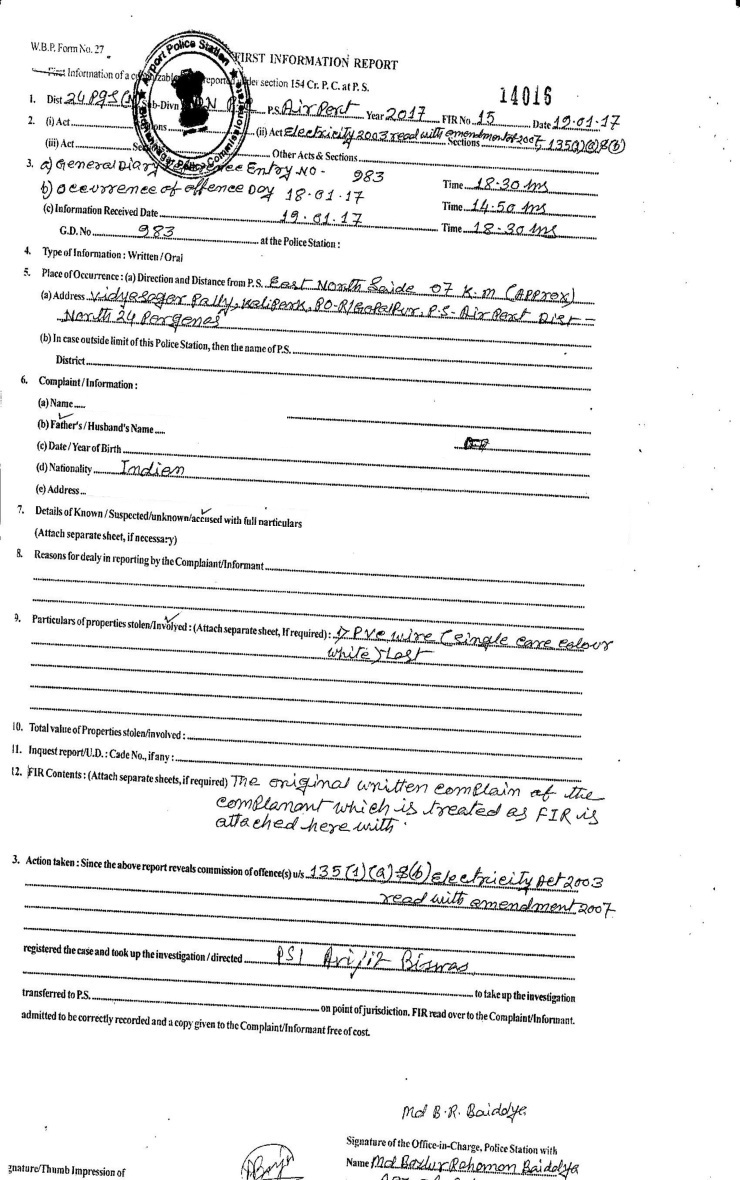 W.B.P. Form No. 27
FIRST INFORMATION REPORT
First Information of a cognizable reported under section 154 Cr. P. C. at P. S.
Airport Police Station
14016
1. Dist 24 PGS (N) Sub-Divn P.S. Air Port Year 2017 FIR No. 15 Date 19-01-17
2. (i) Act Sections (ii) Act Electricity 2003 read with amendment of 2007 Sections 135(1)(a)&(b)
(iii) Act Other Acts & Sections
3. a) General Diary Entry No - 983 Time 18-30 hrs
b) occurrence of offence Day 18-01-17 Time 14-50 hrs
(c) Information Received Date 19-01-17 Time 18-30 hrs
G.D. No 983 at the Police Station :
4. Type of Information : Written / Oral
5. Place of Occurrence : (a) Direction and Distance from P.S. East North Saide 07 K.m (Approx)
(a) Address Vidyasagar Pally, Kalipark, PO-R/Gopalpur, P.S- Air Port Dist -
North 24 Parganas
(b) In case outside limit of this Police Station, then the name of P.S.
District
6. Complaint / Information :
(a) Name
(b) Father's / Husband's Name
(c) Date / Year of Birth
(d) Nationality Indian
(e) Address
7. Details of Known / Suspected/unknown/accused with full particulars
(Attach separate sheet, if necessary)
8. Reasons for dealy in reporting by the Complaiant/Informant
9. Particulars of properties stolen/Involved : (Attach separate sheet, If required) : 1) PVC wire (single core colour
white)
10. Total value of Properties stolen/involved :
11. Inquest report/U.D. : Cade No., if any :
12. FIR Contents : (Attach separate sheets, if required) The original written complain of the
complanant which is treated as FIR is
attached here with.
3. Action taken : Since the above report reveals commission of offence(s) u/s 135(1)(a)&(b) Electricity Act 2003
read with amendment 2007
registered the case and took up the investigation / directed PSI Arijit Biswas
to take up the investigation
transferred to P.S. on point of jurisdiction. FIR read over to the Complaint/Informant.
admitted to be correctly recorded and a copy given to the Complaint/Informant free of cost.
Md B.R. Baiddya
Signature of the Office-in-Charge, Police Station with
gnature/Thumb Impression of
Name Md Bodur Rahomon Baidolya